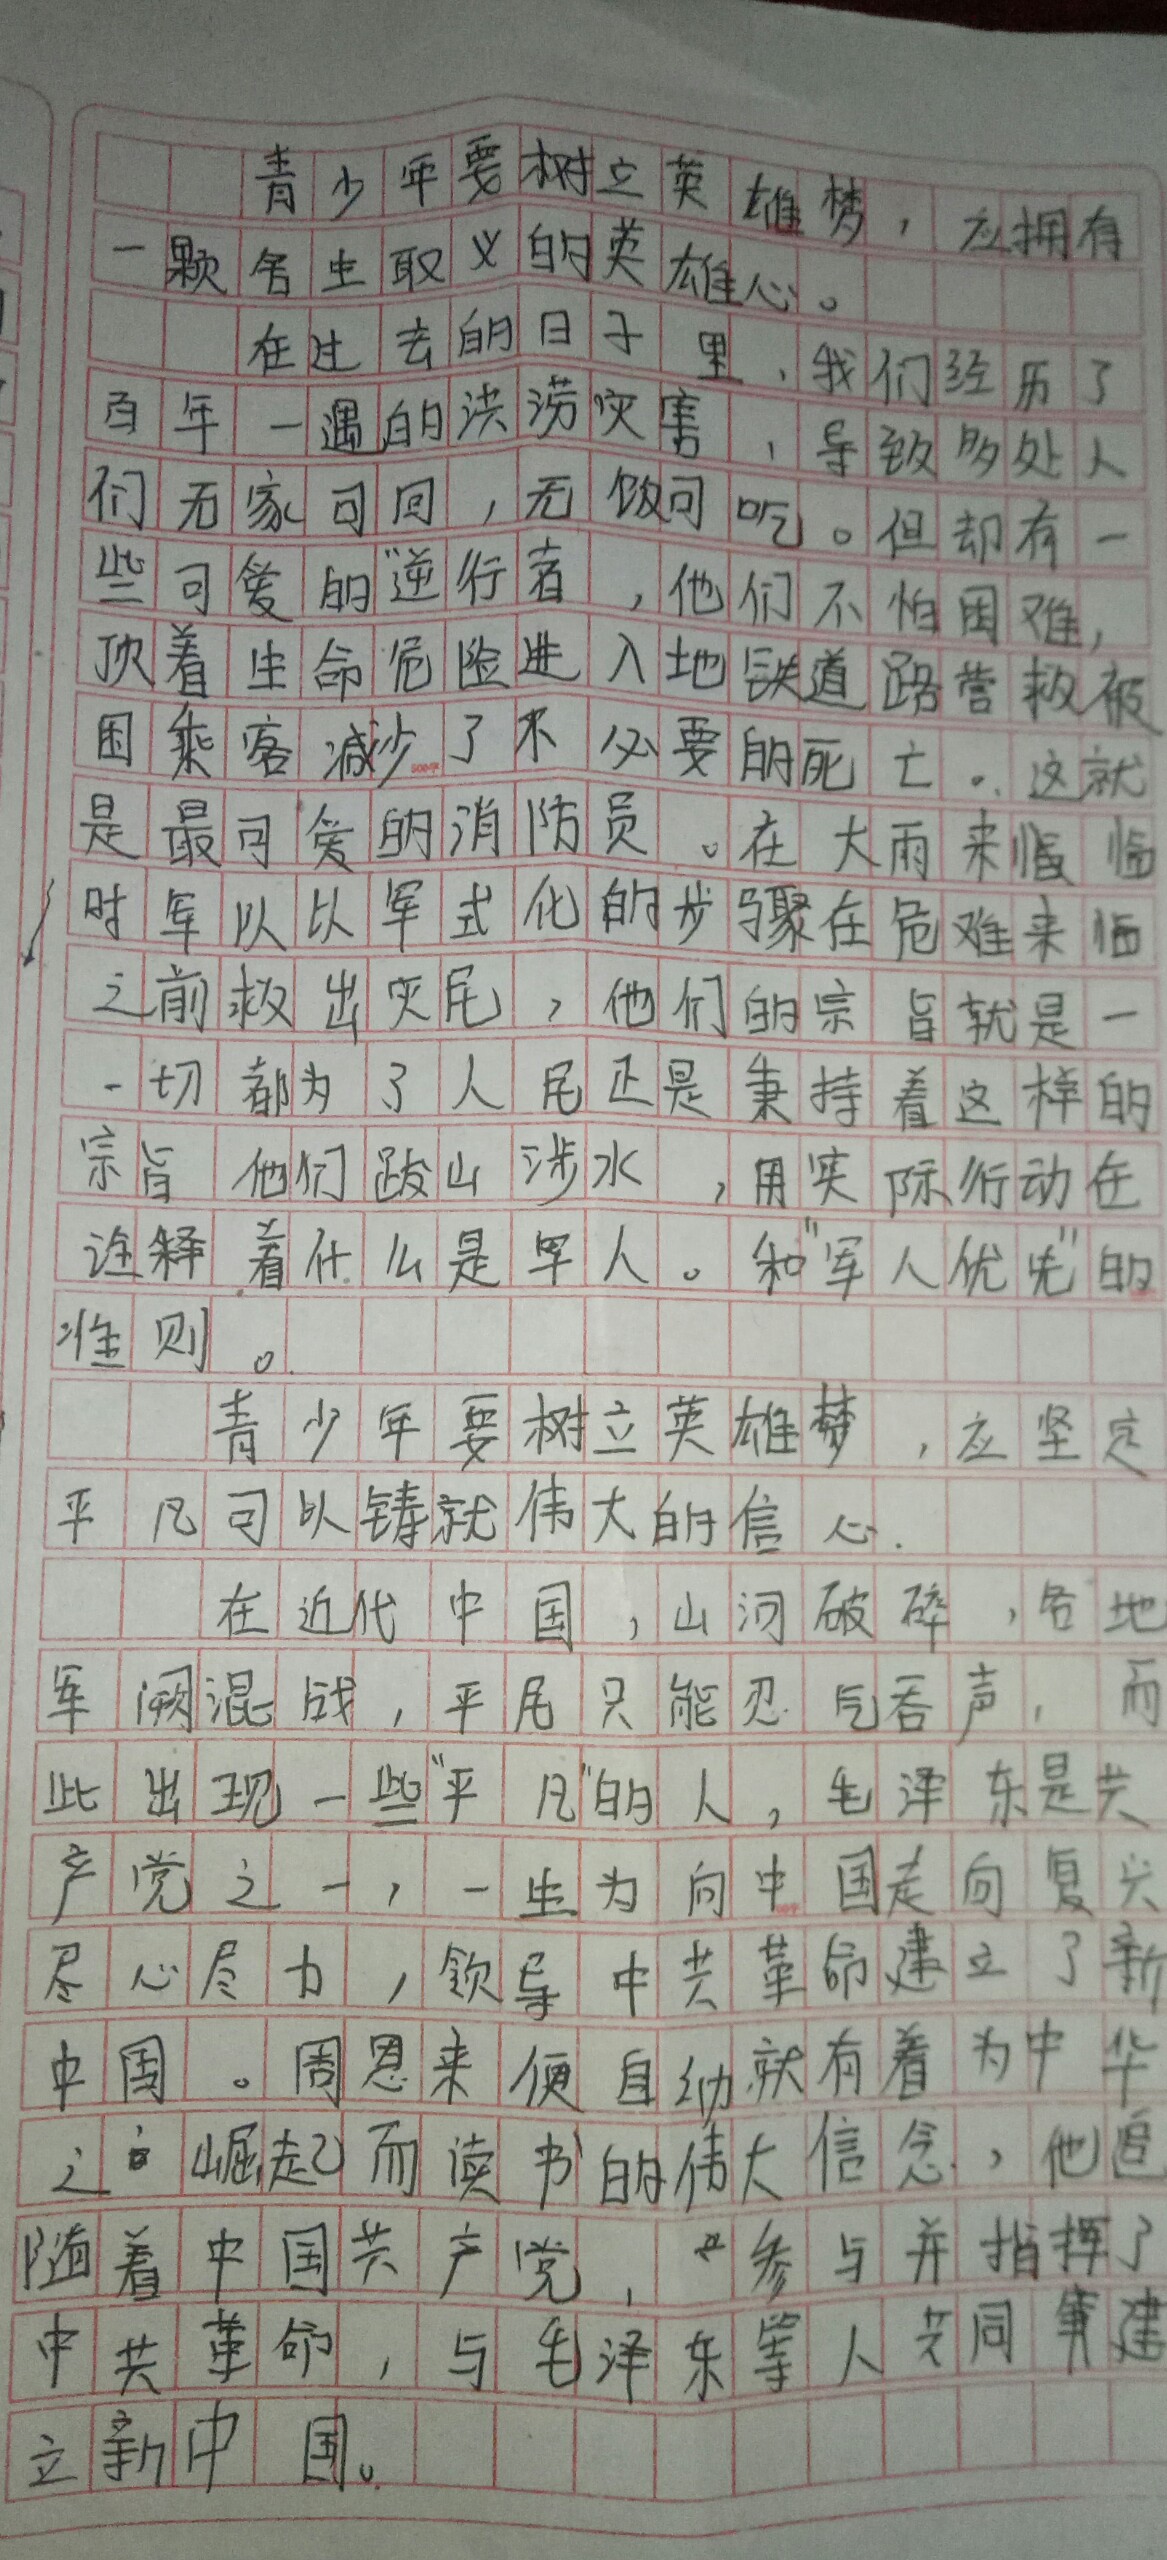 青少年要树立英雄梦，应拥有
一颗舍生取义的英雄心。
在过去的日子里，我们经历了
百年一遇的洪涝灾害，导致多处人
们无家可回，无饭可吃。但却有一
些可爱的“逆行者，他们不怕困难，
顶着生命危险进入地铁道路营救被
困乘客减少了不必要的死亡。这就
是最可爱的消防员。在大雨来临临
时军以以军式化的步骤在危难来临
之前救出灾民，他们的宗旨就是一
一切都为了人民正是秉持着这样的
宗旨他们跋山涉水，用实际行动在
诠释着什么是军人。和“军人优先”的
准则。
青少年要树立英雄梦，应坚定
平凡可以铸就伟大的信心.
在近代中国，山河破碎，各地
军阀混战，平民只能忍气吞声，而
此出现一些“平凡”的人，毛泽东是共
产党之一，一生为向中国走向复兴
尽心尽力，领导中共革命建立了新
中国。周恩来便自幼就有着为中华
之崛起而读书的伟大信念，他追
随着中国共产党，参与并指挥了
中共革命，与毛泽东等人共同建
立新中国。